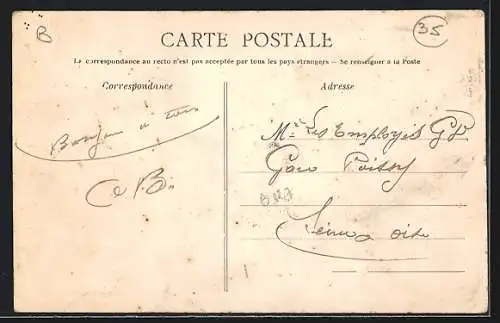 B
35
CARTE POSTALE
La correspondance au recto n'est pas acceptée par tous les pays étrangers — Se renseigner à la Poste
Correspondance
Adresse
Bonjour a tous
B.
Les Employés
Gare Poissy
Seine & oise